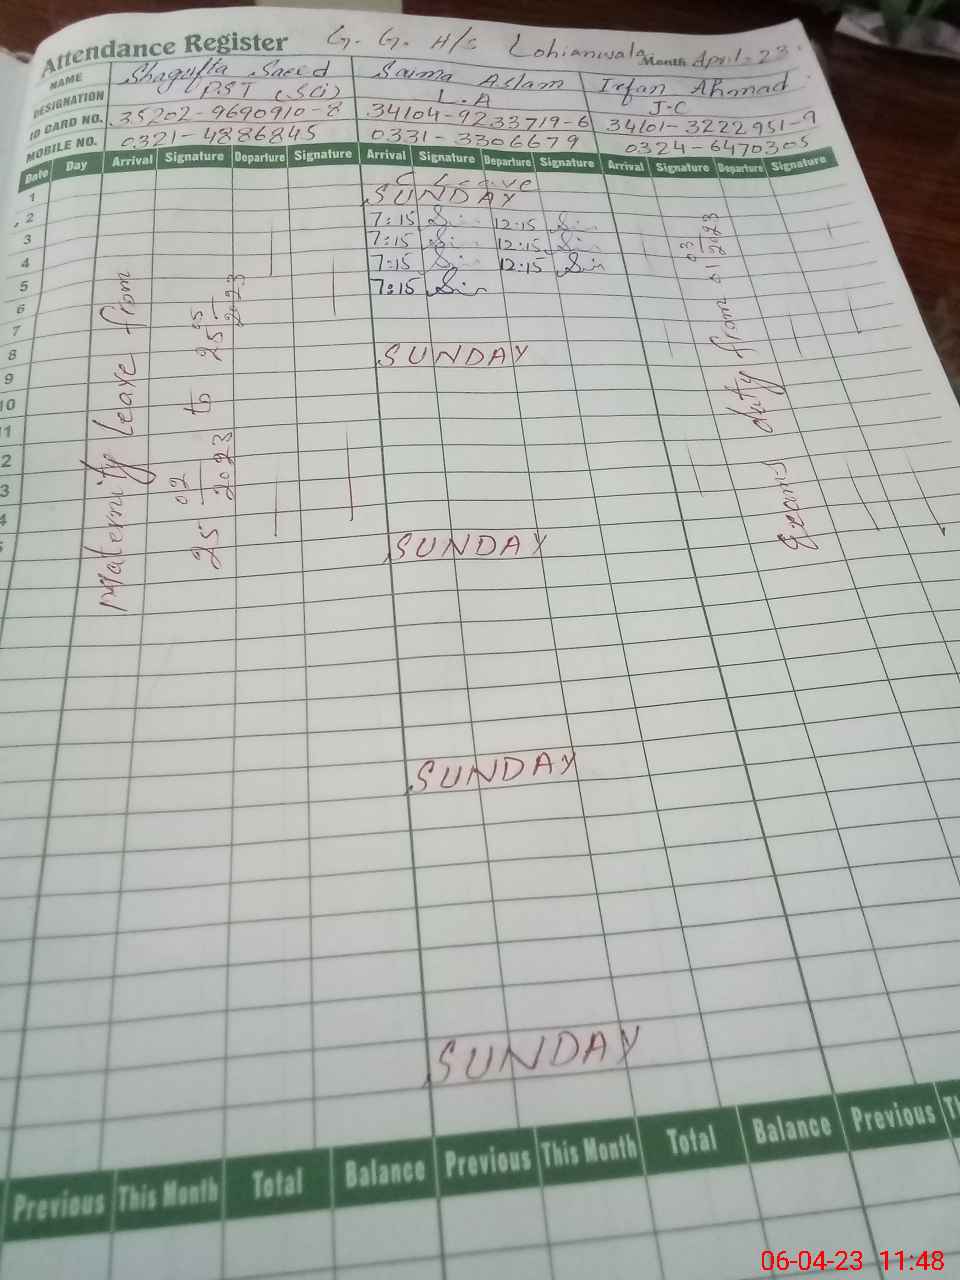 Attendance Register G. G. H/S Lohianwala Month April-23
NAME Shagufta Saeed Saima Aslam Irfan Ahmad
DESIGNATION PST (Sci) L.A J-C
ID CARD NO. 35202-9690910-8 34104-9233719-6 34101-3222951-9
MOBILE NO. 0321-4886845 0331-3306679 0324-6470305
Date Day Arrival Signature Departure Signature Arrival Signature Departure Signature Arrival Signature Departure Signature
1 C Leave
2 SUNDAY
3 7:15 12:15
4 7:15 12:15
5 7:15 12:15
6 7:15
7
8
9 SUNDAY
10
11
12
13
14
15
SUNDAY
SUNDAY
SUNDAY
Maternity Leave from
25 02 2023 to 25 5 2023
Exams duty from 01 03 2023
Previous This Month Total Balance Previous This Month Total Balance Previous
06-04-23 11:48